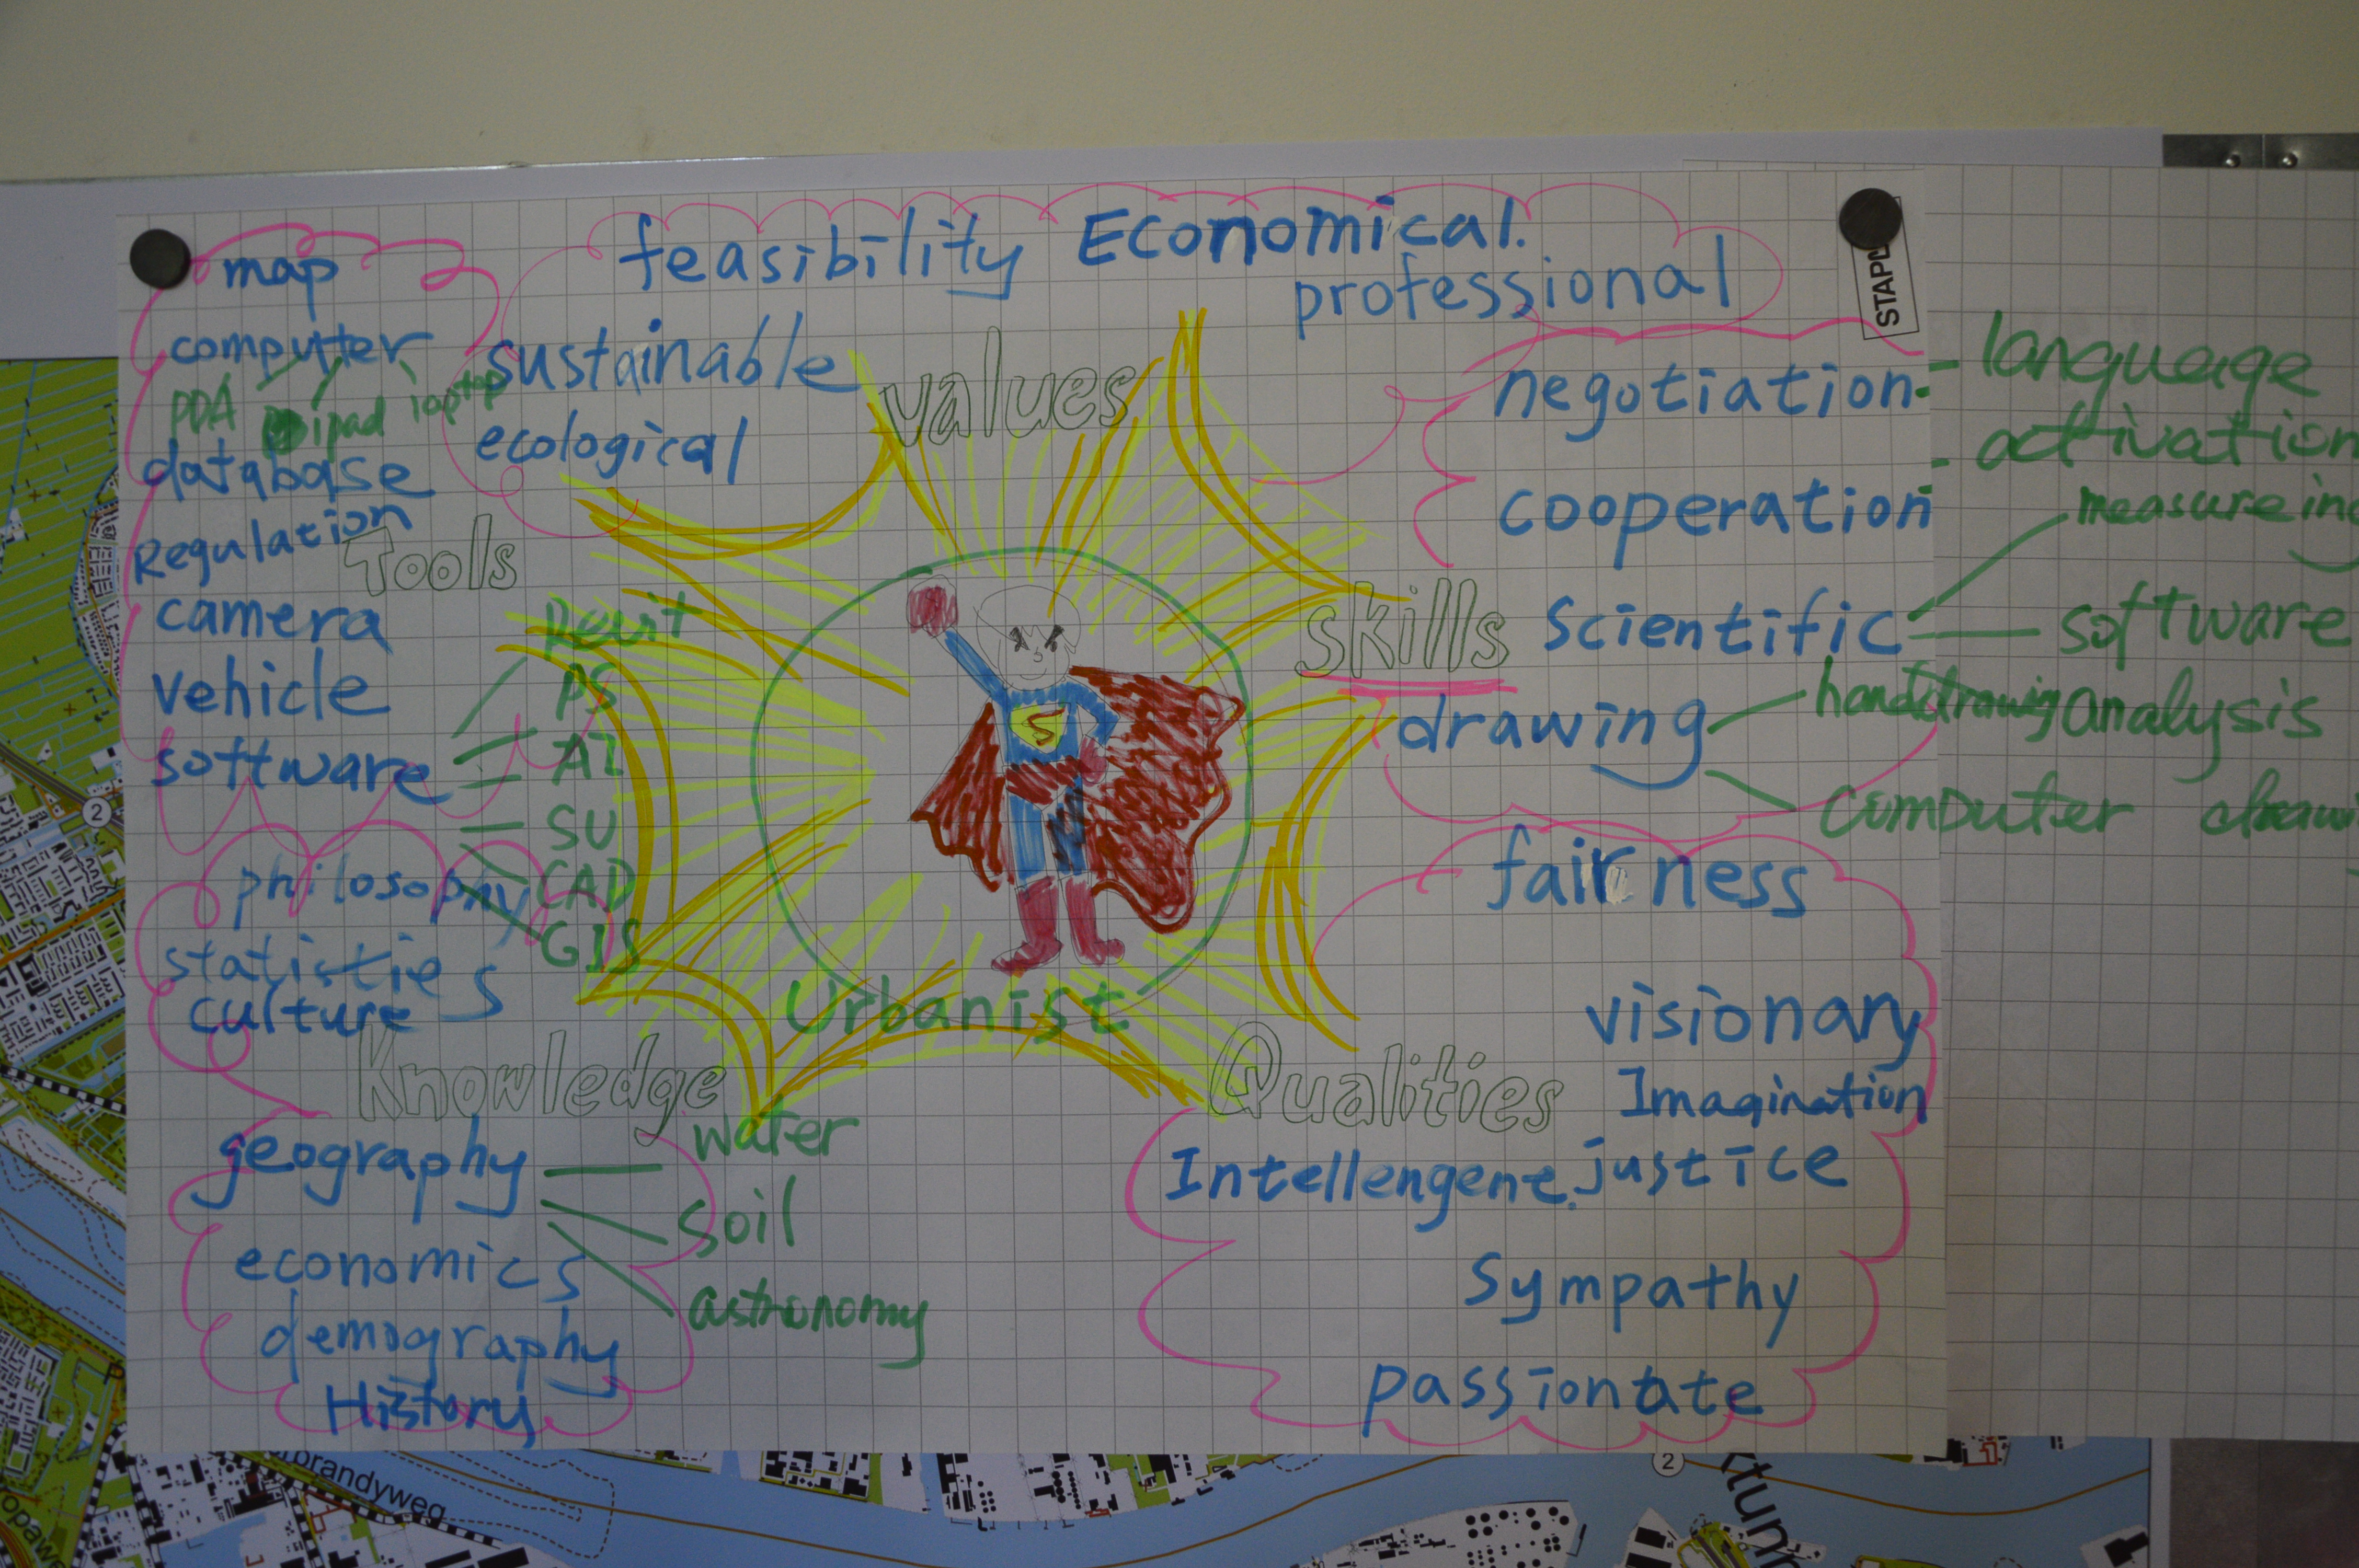 feasibility Economical.
professional
sustainable
ecological
values
map
computer
PDA ipad laptop
database
Regulation
Tools
camera
vehicle
software
Revit
PS
AI
SU
CAD
GIS
negotiation
cooperation
skills
scientific
drawing
language
activation
measureing
software
analysis
handdrawing
computer
STAPL
Urbanist
philosophy
statistics
culture
Knowledge
geography
water
soil
astronomy
economics
demography
History
fairness
visionary
Imagination
Qualities
Intellengent. justice
Sympathy
passionate
2
2